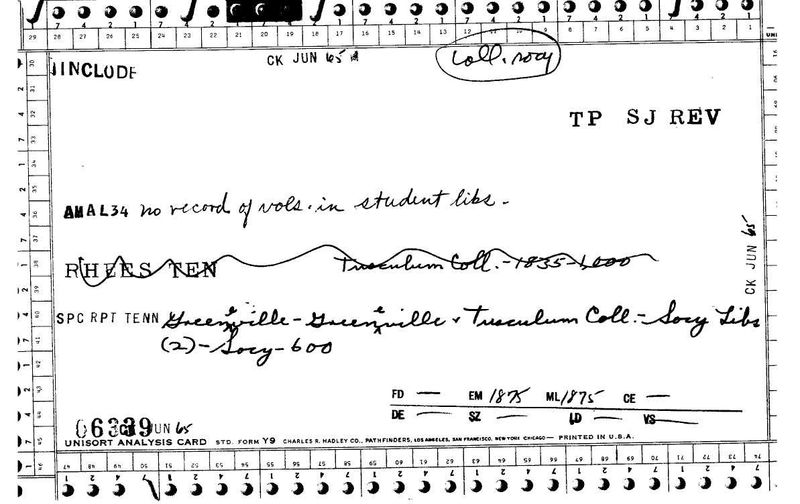 29 28 27 26 25 24 23 22 21 20 19 18 17 16 15 14 13 12 11 10 9 8 7 6 5 4 3 2 1
INCLUDE
CK JUN 65
Coll. socy
TP SJ REV
AMAL34 no record of vols. in student libs.
RHEES TEN Tusculum Coll. - 1835-1,000
CK JUN 65
SPC RPT TENN Greeneville - Greeneville & Tusculum Coll. - Socy Libs
(2) - Socy - 600
FD — EM 1875 ML 1875 CE —
DE — SZ — LD — VS —
06339 JUN 65
UNISORT ANALYSIS CARD STD. FORM Y9 CHARLES R. HADLEY CO., PATHFINDERS, LOS ANGELES, SAN FRANCISCO, NEW YORK CHICAGO — PRINTED IN U.S.A.